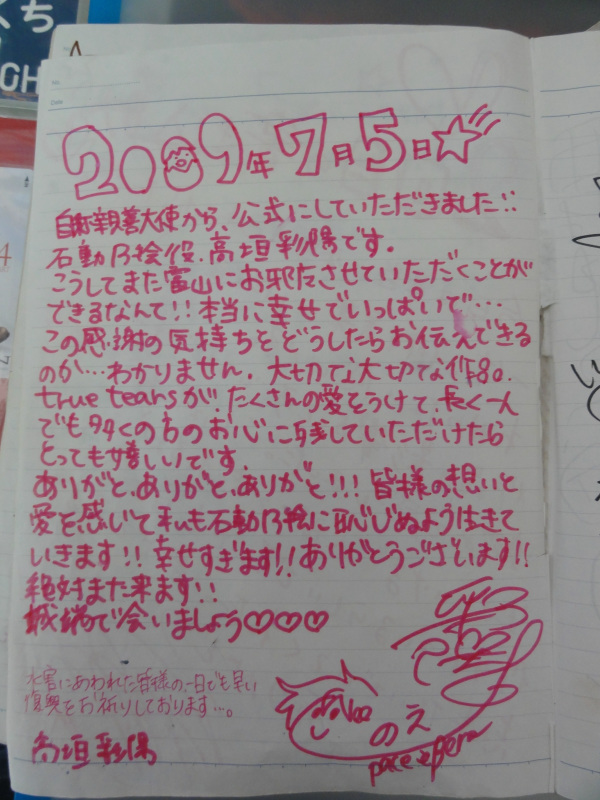 くち
CH
No.
Date
2009年7月5日☆
自称親善大使から、公式にしていただきました!!
石動乃絵役、高垣彩陽です。
こうしてまた富山にお邪魔させていただくことが
できるなんて!!本当に幸せでいっぱいで…
この感謝の気持ちをどうしたらお伝えできる
のか…わかりません。大切で大切な作品。
true tearsが、たくさんの愛をうけて、長く一人
でも多くの方のお心に残していただけたら
とっても嬉しいです。
ありがと、ありがと、ありがと!!!皆様の想いと
愛を感じて私も石動乃絵に恥じぬよう生きて
いきます!!幸せすぎます!!ありがとうございます!!
絶対また来ます!!
城端で会いましょう♡♡♡
水害にあわれた皆様の、一日でも早い
復興をお祈りしております…。
高垣彩陽
のえ